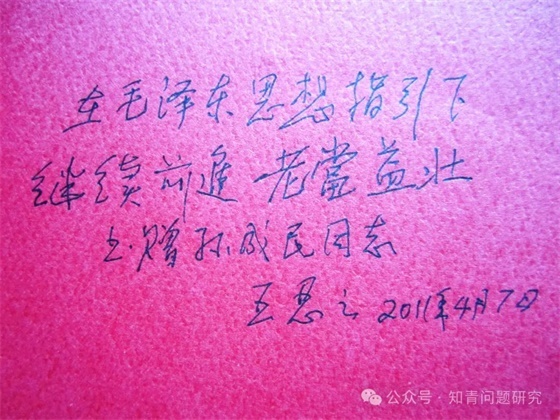 在毛泽东思想指引下
继续前進 老當益壮
书赠孙成民同志
王 2011年4月7日
公众号 · 知青问题研究